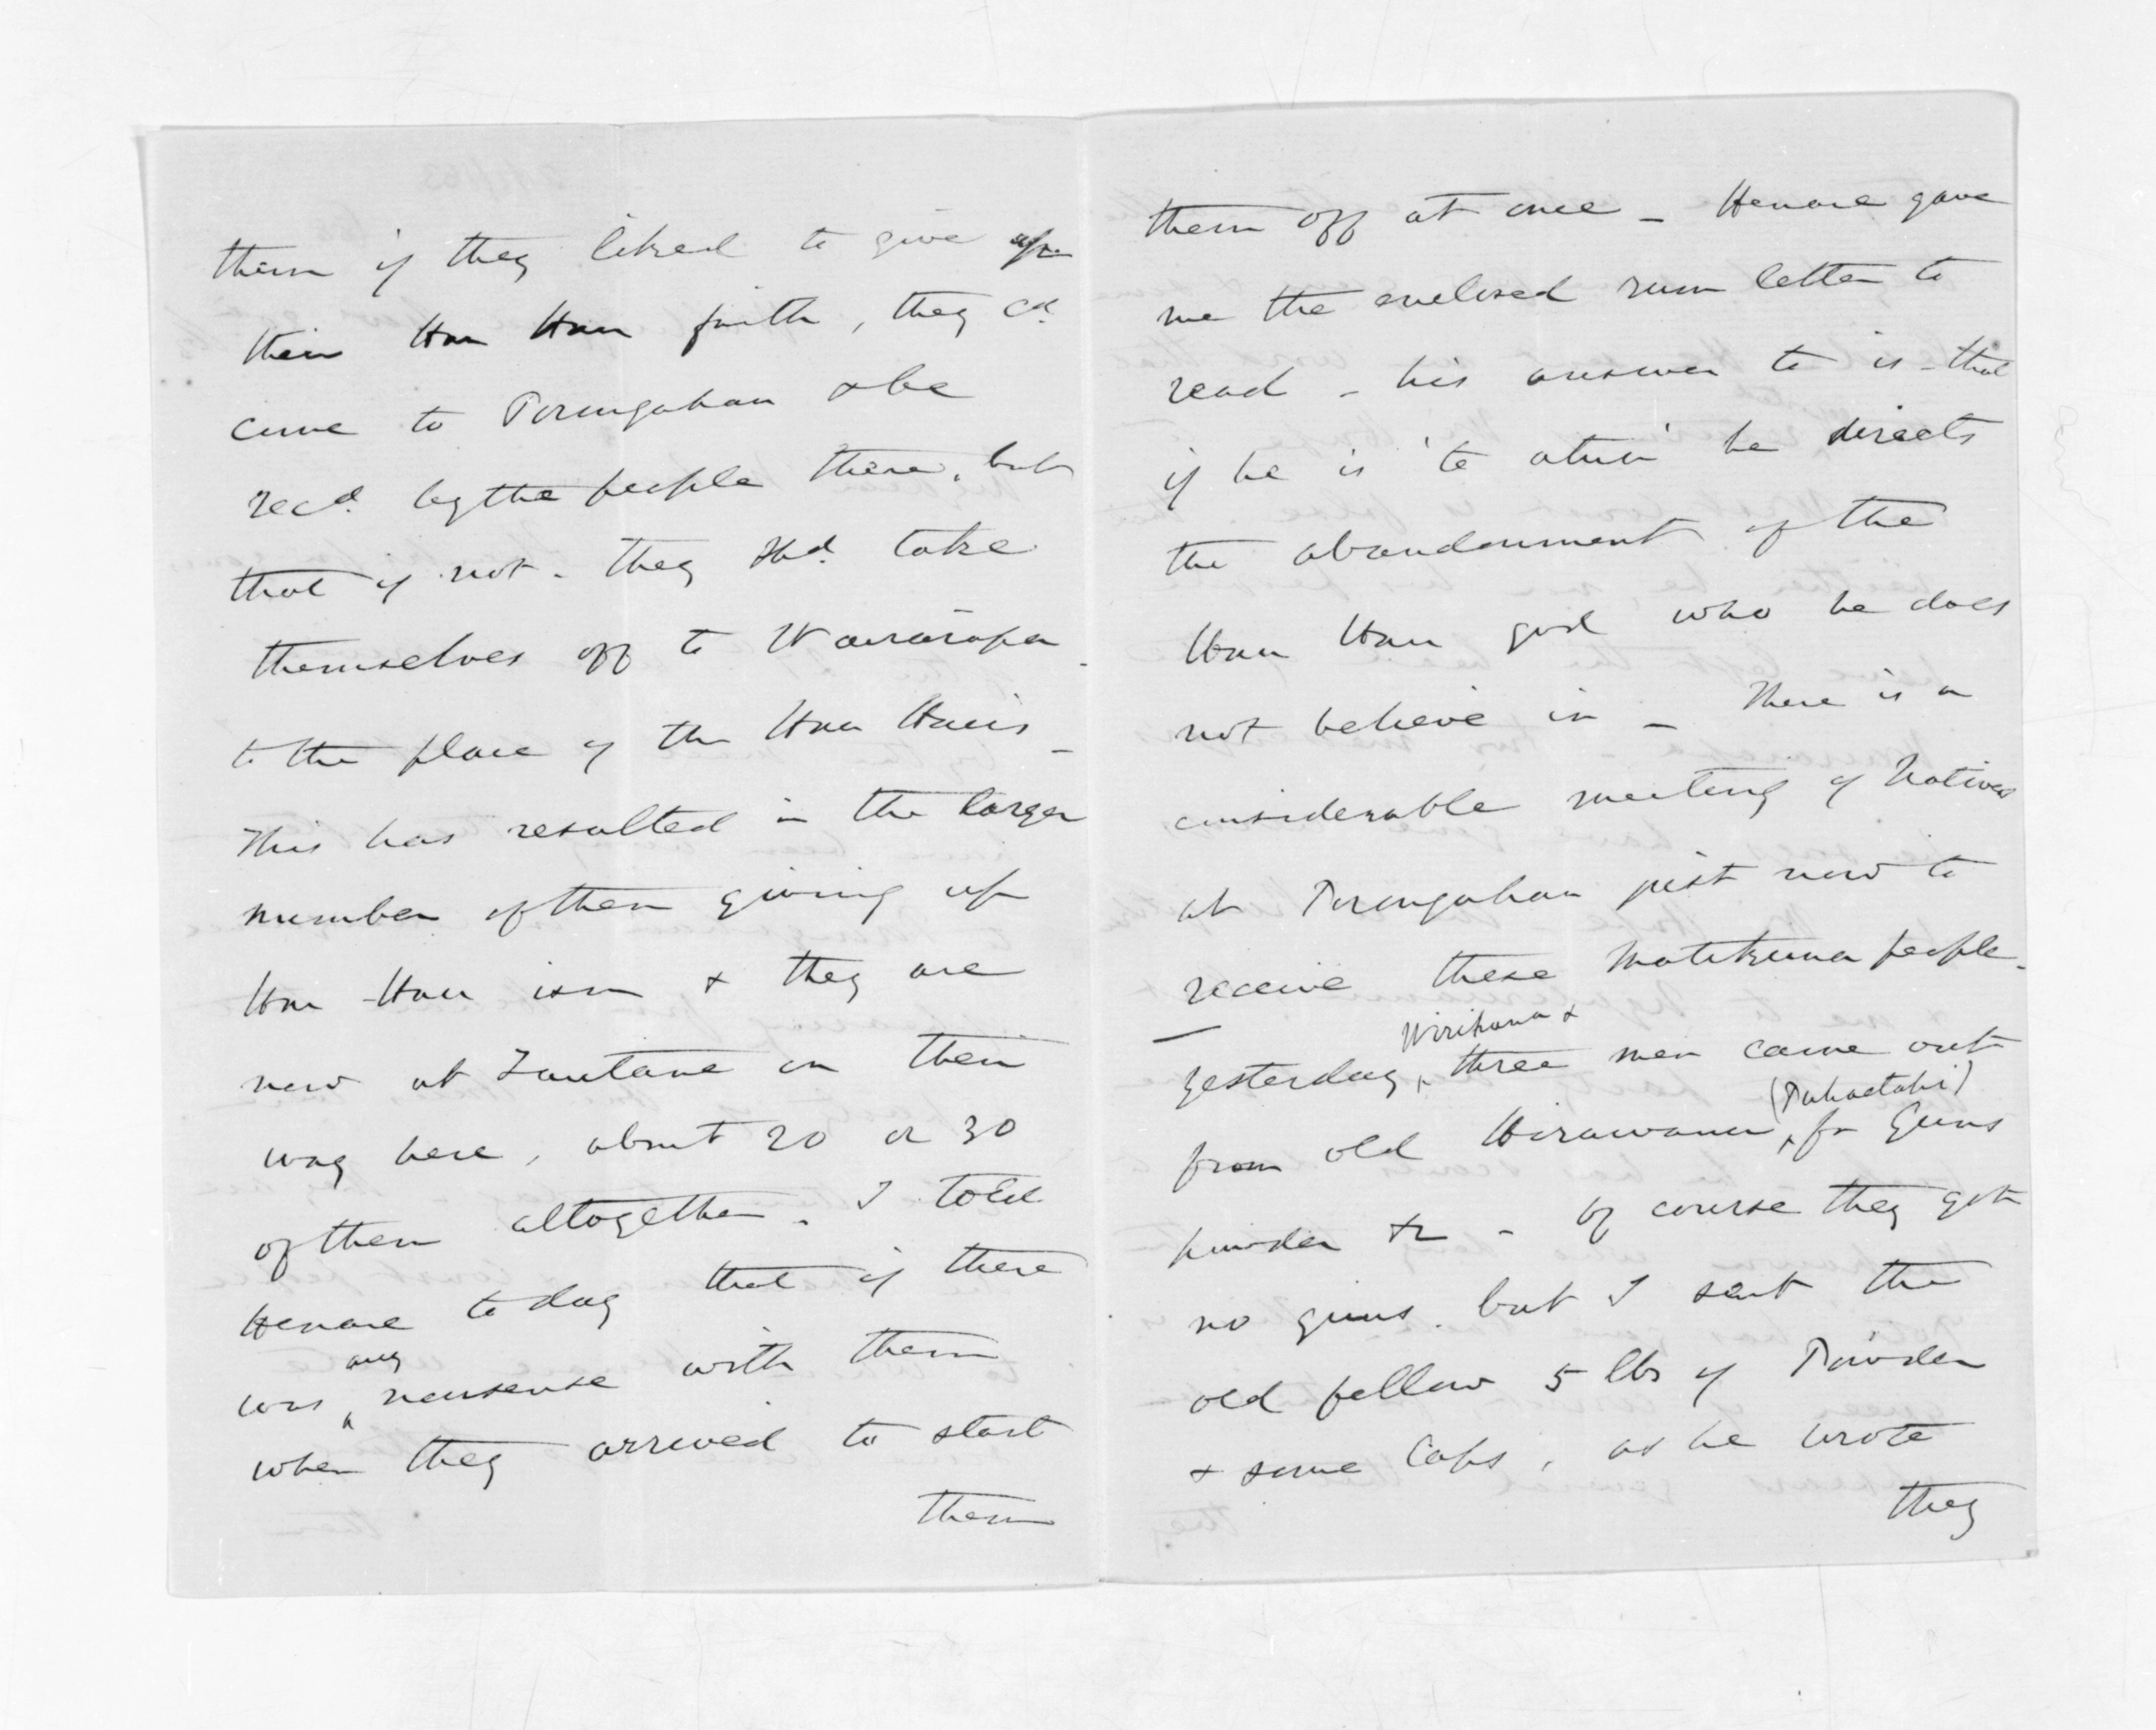 them if they liked to give up
their Hau Hau faith, they cd.
come to Porungahau & be
recd. by the people there, but
that if not - they shd. take
themselves off to Wairarapa -
to the place of the Hau Hauis -
This has resulted in the larger
number of them giving up
Hau Hau ism & they are
now at Tautane on their
way here, about 20 or 30
of them altogether. I told
Henare to day that if there
was any nonsense with them
when they arrived to start
them
them off at once - Henare gave
me the enclosed rum letter to
read - his answer to is - that
if he is 'to atua' he directs
the abandonment of the
Hau Hau god who he does
not believe in - There is a
considerable meeting of Natives
at Porungahau just now to
receive these Matikuna people -
yesterday, Wirihana & three men came out
from old Hirawanu, (Puhaetahi) for Guns
powder &c - Of course they got
no guns. but I sent the
old fellow 5 lbs of Powder
& some Caps, as he wrote
they